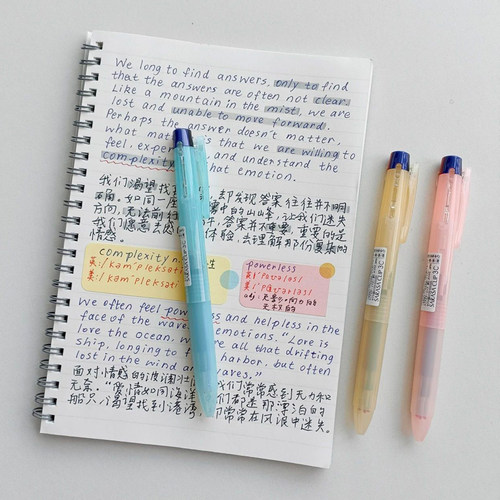 We long to find answers, only to find
that the answers are often not clear.
Like a mountain in the mist, we are
lost and unable to move forward.
Perhaps the answer doesn't matter,
what mat that we are willing to
feel, expe and understand the
complexity that emotion.
我们渴望找 却发现答案往往并不明
如同一座 中的山峰,让我们迷失
方向,无法前 答案并不重要,重要的是
我们愿意去感 体验,去理解那份复杂的
情感。
complexity n. 性
英:/kəmˈpleksəti
美:/kəmˈpleksəti
powerless
英:/ˈpaʊələs/
美:/ˈpaʊərləs/
adj. 无影响力的
We often feel pow and helpless in the
face of the wave emotions. "Love is
love the ocean, w re all that drifting
ship, longing to harbor, but often
lost in the wind an aves."
面对情感的波涛 我们常常感到无力和
无奈。"爱情如同海洋 们都是那漂泊的
船只,渴望找到港湾 却常常在风浪中迷失。